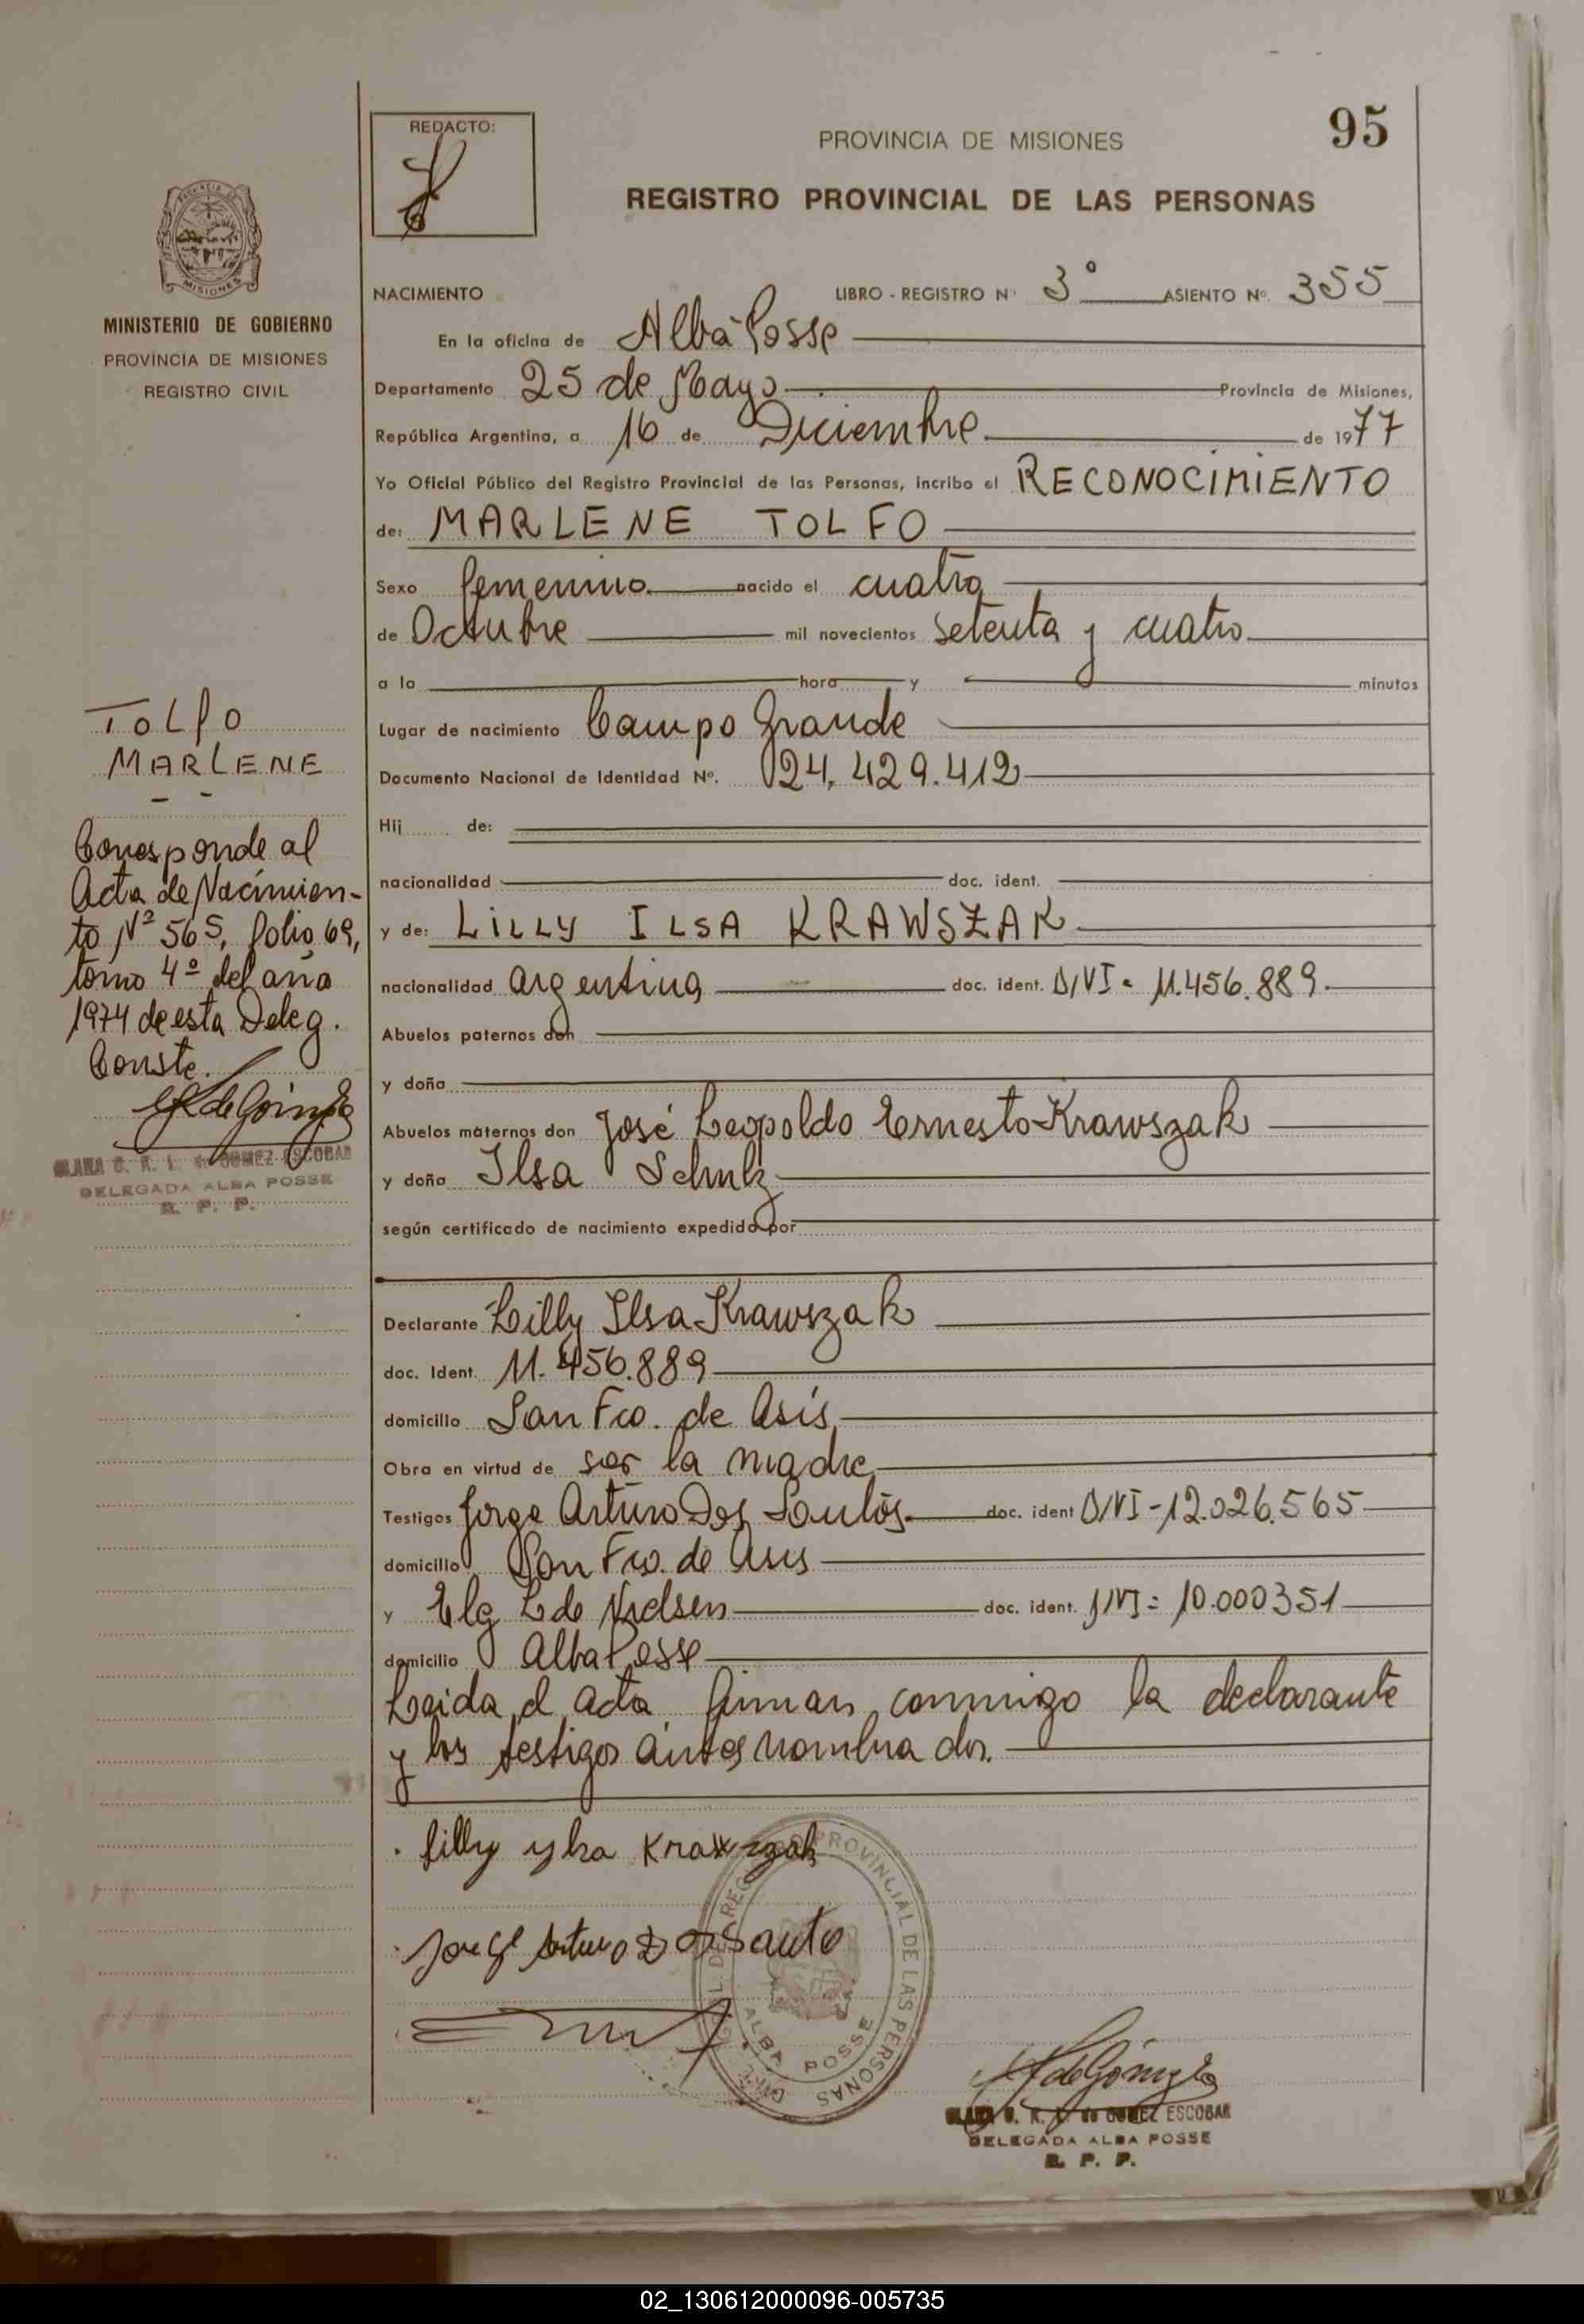 REDACTO:
PROVINCIA DE MISIONES
95
REGISTRO PROVINCIAL DE LAS PERSONAS
MISIONES
MINISTERIO DE GOBIERNO
PROVINCIA DE MISIONES
REGISTRO CIVIL
NACIMIENTO LIBRO - REGISTRO Nº 3º ASIENTO Nº. 355
En la oficina de Alba Posse
Departamento 25 de Mayo Provincia de Misiones,
República Argentina, a 16 de Diciembre de 1977
Yo Oficial Público del Registro Provincial de las Personas, incribo el RECONOCIMIENTO
de: MARLENE TOLFO
Sexo femenino nacido el cuatro
de Octubre mil novecientos setenta y cuatro
a la hora y minutos
Lugar de nacimiento Campo Grande
Documento Nacional de Identidad Nº. 24.429.412
Hij de:
nacionalidad doc. ident.
y de: LILLY ILSA KRAWSZAK
nacionalidad argentina doc. ident. DNI- 11.456.889
Abuelos paternos don
y doña
Abuelos maternos don José Leopoldo Ernesto Krawszak
y doña Ilsa Schulz
según certificado de nacimiento expedido por
Declarante Lilly Ilsa Krawszak
doc. Ident. 11.456.889
domicilio San Fco. de Asís
Obra en virtud de ser la madre
Testigos Jorge Arturo Dos Santos doc. ident DNI-12.026.565
domicilio San Fco. de Asís
y L de Nielsen doc. ident. DNI= 10.000351
domicilio Alba Posse
Leida el acta firman conmigo la declarante
y los testigos antes nombrados.
TOLFO
MARLENE
Corresponde al
Acta de Nacimien-
to Nº 565, folio 69,
tomo 4º del año
1974 de esta Deleg.
Conste.
de GOMEZ ESCOBAR
DELEGADA ALBA POSSE
R. P. P.
Lilly ylsa Krawszak
Jorge Arturo Dos Santo
PROVINCIAL DE LAS PERSONAS
ALBA POSSE
de GOMEZ ESCOBAR
DELEGADA ALBA POSSE
R. P. P.
02_130612000096-005735